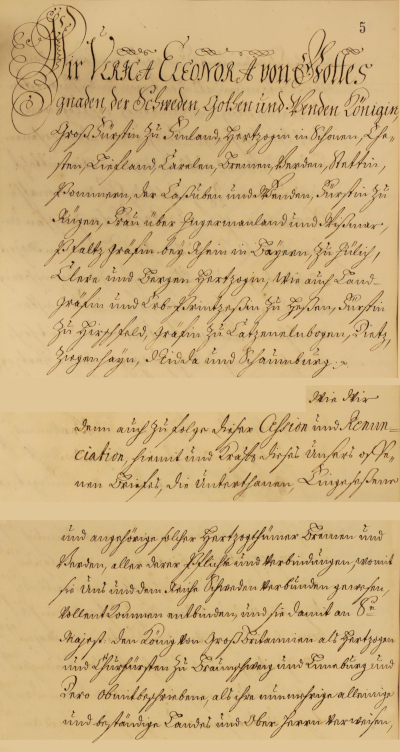 5
Wir VLRICA ELEONORA von Gottes
gnaden, der Schweden, Gothen und Wenden Königin,
Groß Fürstin zu Finland, Hertzogin in Schonen, Ehe-
sten, Liefland, Carelen, Bremen, Verden, Stettin,
Pommern, der Caßuben und Wenden, Fürstin zu
Rügen, Frau über Ingermanland und Wißmar,
Pfaltz Gräfin bey Rhein in Bayern, zu Jülich,
Cleve und Bergen Hertzogin, Wie auch Land-
gräfin und Erb-Printzeßin zu Heßen, Fürstin
zu Hirschfeld, Gräfin zu Catzenelnbogen, Dietz,
Ziegenhayn, Nidda und Schaumburg.
Wie Wir
denn auch zu folge dieser Cession und Renun-
ciation, hiemit und Krafft dieses Unsers offe-
nen Briefes, die Unterthanen, Eingeseßene
und angehörige solcher Hertzogthümer Bremen und
Verden, aller derer Pflichte und Verbindungen, womit
sie Uns und dem Reiche Schweden verbunden gewesen,
vollenkommen entbinden, und sie damit an Se
Majest: den König von Groß Britannien als Hertzogen
und Churfürsten zu Braunschweig und Lüneburg und
Dero Obmitbeschriebene, als ihre nunmehrige alleinige
und beständige Landes und Ober Herrn verweisen,